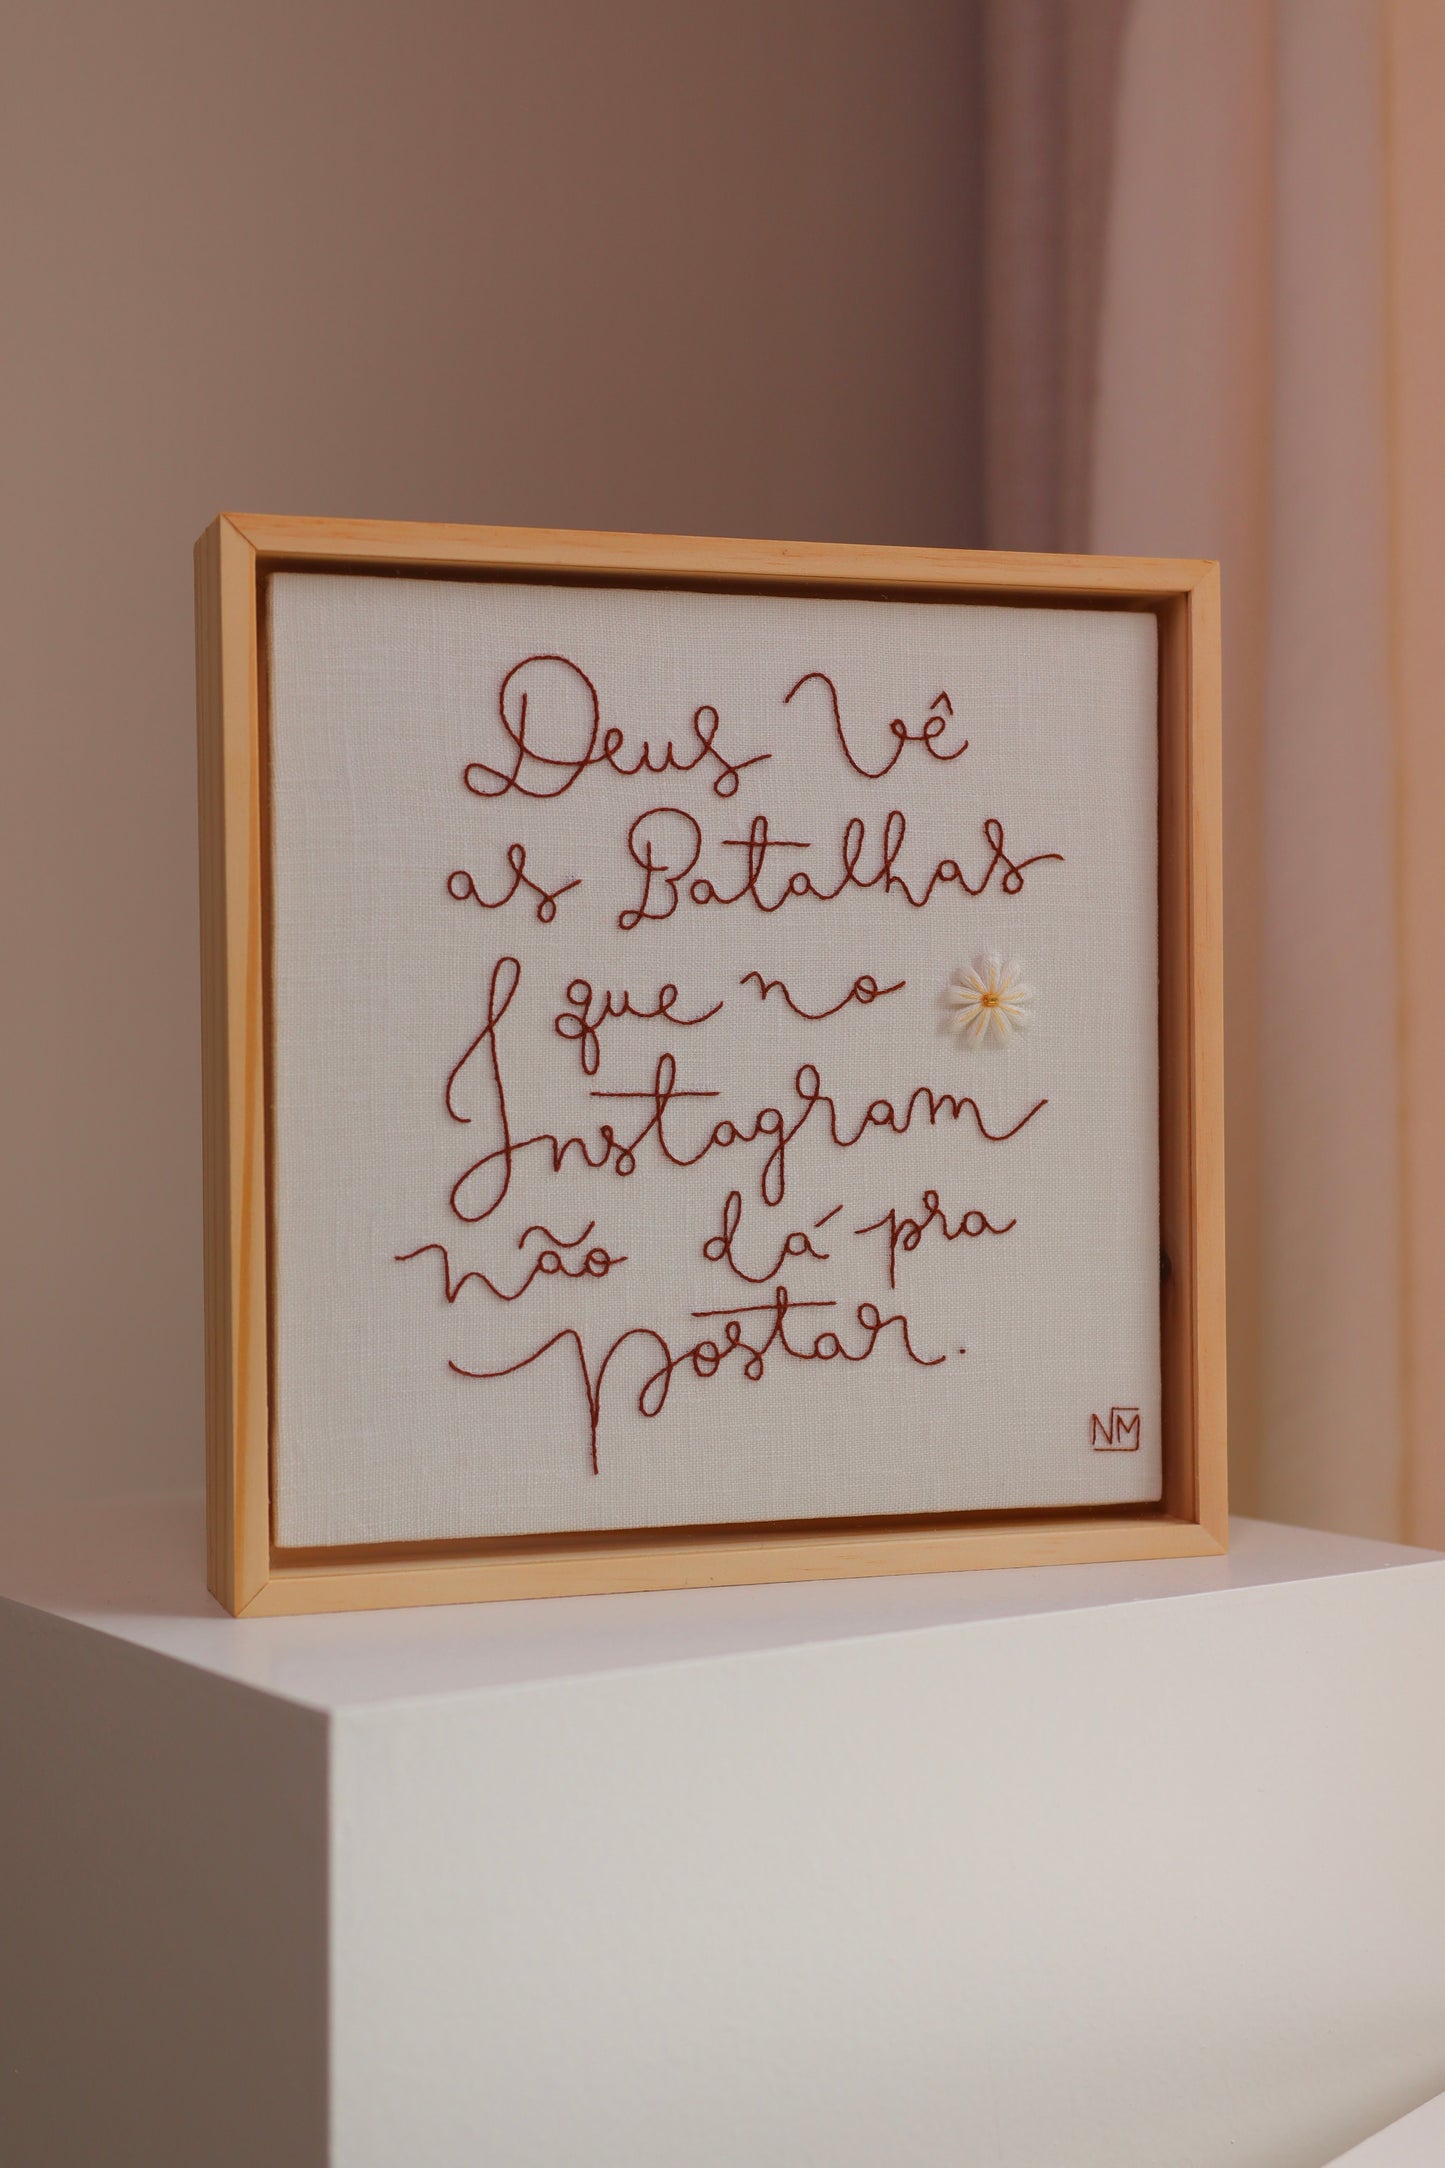 Deus Vê
as Batalhas
que no
Instagram
não dá pra
postar.
NM